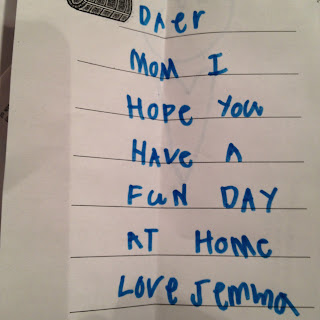 DAer
MOM I
HOPE YOU
HAVE A
FUN DAY
AT HOME
LOVE Jemma